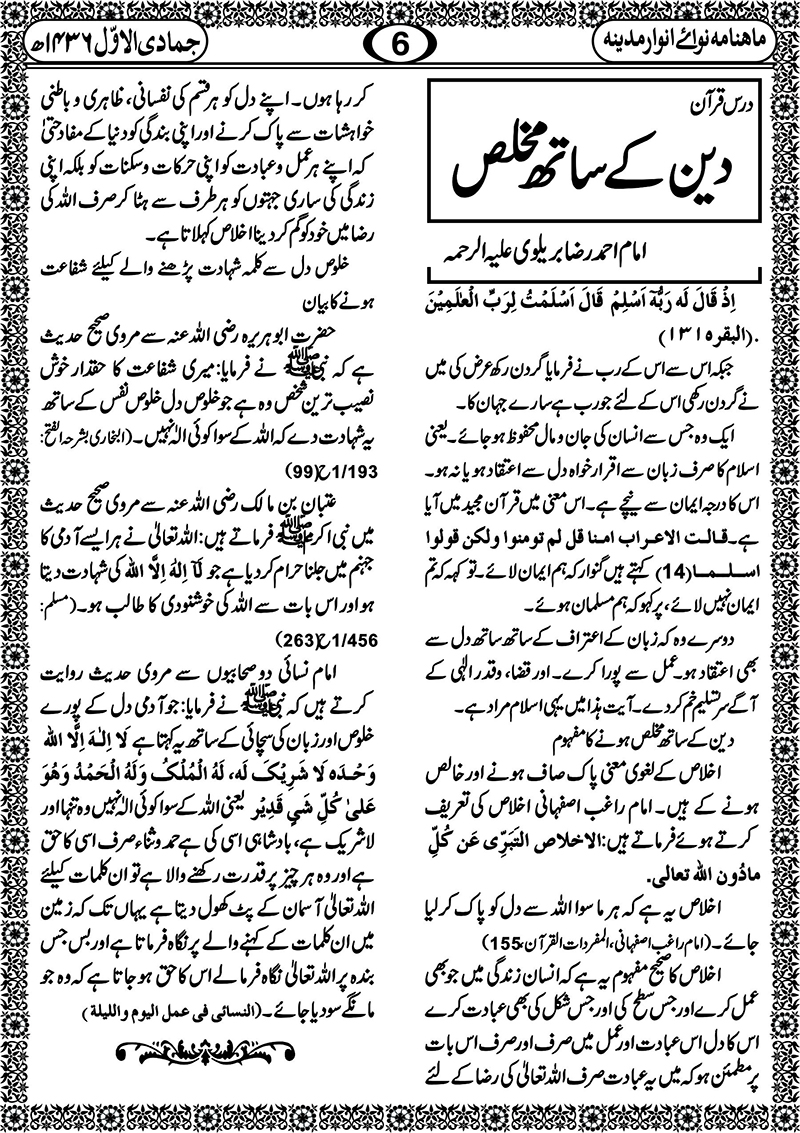 ماہنامہ نوائے انوار مدینہ
6
جمادی الاوّل ۱۴۳۶ھ
درس قرآن
دین کے ساتھ مخلص
امام احمد رضا بریلوی علیہ الرحمہ
اِذْ قَالَ لَہ رَبُّہٓ اَسْلِمْ قَالَ اَسْلَمْتُ لِرَبِّ الْعٰلَمِیْنَ
.(البقرہ ۱۳۱)
جبکہ اس سے اس کے رب نے فرمایا گردن رکھ عرض کی میں
نے گردن رکھی اس کے لئے جو رب ہے سارے جہان کا۔
ایک وہ جس سے انسان کی جان و مال محفوظ ہو جائے۔ یعنی
اسلام کا صرف زبان سے اقرار خواہ دل سے اعتقاد ہو یا نہ ہو۔
اس کا درجہ ایمان سے نیچے ہے۔ اس معنی میں قرآن مجید میں آیا
ہے۔ قالت الاعراب امنا قل لم تومنوا ولکن قولوا
اسلمنا (14) کہتے ہیں گنوار کہ ہم ایمان لائے۔ تو کہہ کہ تم
ایمان نہیں لائے، پر کہو کہ ہم مسلمان ہوئے۔
دوسرے وہ کہ زبان کے اعتراف کے ساتھ ساتھ دل سے
بھی اعتقاد ہو۔ عمل سے پورا کرے۔ اور قضاء وقدر الٰہی کے
آگے سر تسلیم خم کر دے۔ آیت ہذا میں یہی اسلام مراد ہے۔
دین کے ساتھ مخلص ہونے کا مفہوم
اخلاص کے لغوی معنی پاک صاف ہونے اور خالص
ہونے کے ہیں۔ امام راغب اصفہانی اخلاص کی تعریف
کرتے ہوئے فرماتے ہیں: الاخلاص التَبَرِّی عَن کُلِّ
مادُون اللہ تعالی.
اخلاص یہ ہے کہ ہر ماسوا اللہ سے دل کو پاک کر لیا
جائے۔ (امام راغب اصفہانی، المفردات القرآن، 155)
اخلاص کا صحیح مفہوم یہ ہے کہ انسان زندگی میں جو بھی
عمل کرے اور جس سطح کی اور جس شکل کی بھی عبادت کرے
اس کا دل اس عبادت اور عمل میں صرف اور صرف اس بات
پر مطمئن ہو کہ میں یہ عبادت صرف اللہ تعالیٰ کی رضا کے لئے
کر رہا ہوں۔ اپنے دل کو ہر قسم کی نفسانی، ظاہری و باطنی
خواہشات سے پاک کرنے اور اپنی بندگی کو دنیا کے مفاد حتیٰ
کہ اپنے ہر عمل و عبادت کو اپنی حرکات و سکنات کو بلکہ اپنی
زندگی کی ساری جہتوں کو ہر طرف سے ہٹا کر صرف اللہ کی
رضا میں خود کو گم کر دینا اخلاص کہلاتا ہے۔
خلوص دل سے کلمہ شہادت پڑھنے والے کیلئے شفاعت
ہونے کا بیان
حضرت ابو ہریرہ رضی اللہ عنہ سے مروی صحیح حدیث
ہے کہ نبی ﷺ نے فرمایا: میری شفاعت کا حقدار خوش
نصیب ترین شخص وہ ہے جو خلوص دل خلوص نفس کے ساتھ
یہ شہادت دے کہ اللہ کے سوا کوئی الٰہ نہیں۔ (البخاری بشرحہ الفتح:
1/193 ح(99)
عتبان بن مالک رضی اللہ عنہ سے مروی صحیح حدیث
میں نبی اکرم ﷺ فرماتے ہیں: اللہ تعالیٰ نے ہر ایسے آدمی کا
جہنم میں جلنا حرام کر دیا ہے جو لَآ اِلٰہَ اِلَّا اللہ کی شہادت دیتا
ہو اور اس بات سے اللہ کی خوشنودی کا طالب ہو۔ (مسلم:
1/456 ح(263)
امام نسائی دو صحابیوں سے مروی حدیث روایت
کرتے ہیں کہ نبی ﷺ نے فرمایا: جو آدمی دل کے پورے
خلوص اور زبان کی سچائی کے ساتھ یہ کہتا ہے لَا اِلٰہَ اِلَّا اللہ
وَحْدَہ لَا شَرِیْکَ لَہ، لَہُ الْمُلْکُ وَلَہُ الْحَمْدُ وَھُوَ
عَلیٰ کُلِّ شَیٍ قَدِیْر یعنی اللہ کے سوا کوئی الٰہ نہیں وہ تنہا اور
لا شریک ہے، بادشاہی اسی کی ہے حمد و ثناء صرف اسی کا حق
ہے اور وہ ہر چیز پر قدرت رکھنے والا ہے تو ان کلمات کیلئے
اللہ تعالیٰ آسمان کے پٹ کھول دیتا ہے یہاں تک کہ زمین
میں ان کلمات کے کہنے والے پر نگاہ فرماتا ہے اور بس جس
بندہ پر اللہ تعالیٰ نگاہ فرمالے اس کا حق ہو جاتا ہے کہ وہ جو
مانگے سو دیا جائے۔ (النسائی فی عمل الیوم واللیلۃ)